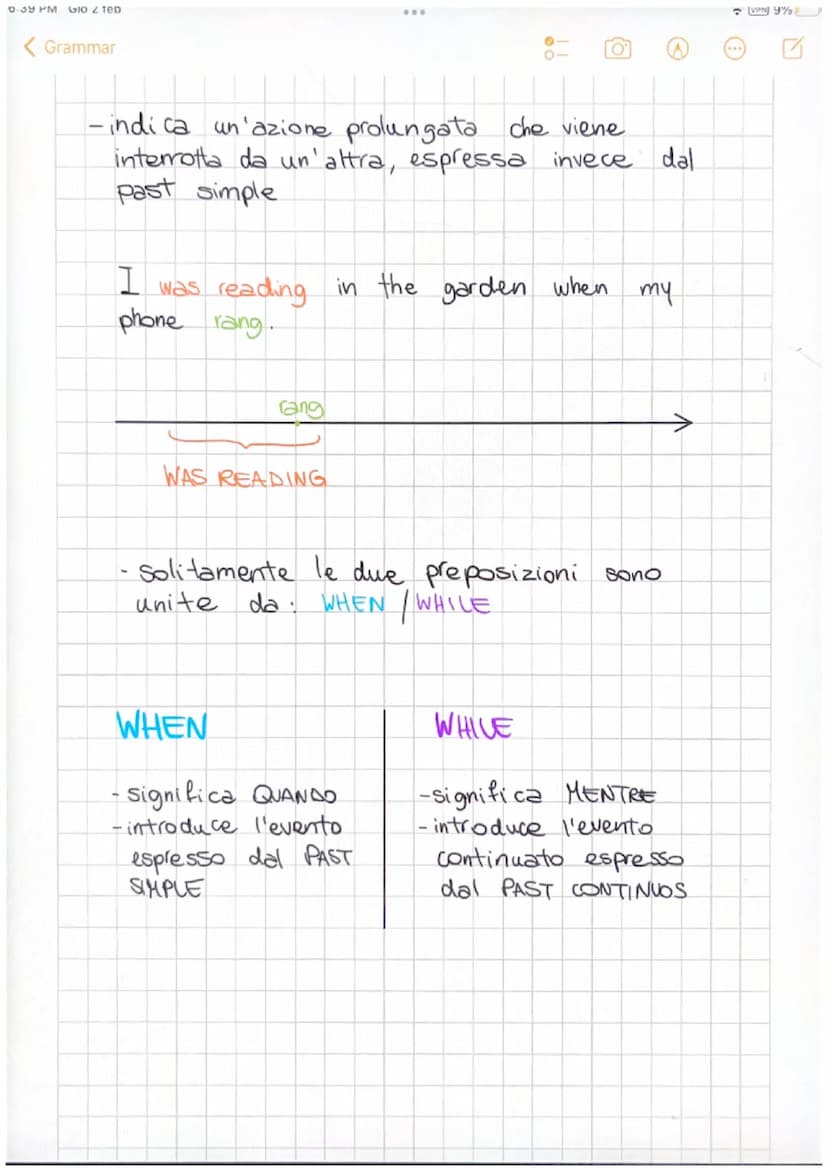 6:39 PM Gio 2 feb
VPN 9%
Grammar
- indica un'azione prolungata che viene
interrotta da un'altra, espressa invece dal
past simple
I was reading in the garden when my
phone rang.
rang
WAS READING
- solitamente le due preposizioni sono
unite da: WHEN / WHILE
WHEN
- significa QUANDO
- introduce l'evento
espresso dal PAST
SIMPLE
WHILE
- significa MENTRE
- introduce l'evento
continuato espresso
dal PAST CONTINUOS